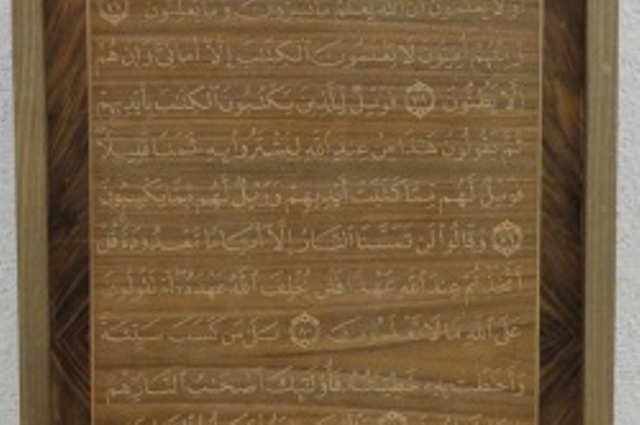 أولا يعلمون أن الله يعلم ما يسرون وما يعلنون ٧٧
ومنهم أميون لا يعلمون الكتب إلا أماني وإن هم
إلا يظنون ٧٨ فويل للذين يكتبون الكتب بأيديهم
ثم يقولون هذا من عند الله ليشتروا به ثمنا قليلا
فويل لهم مما كتبت أيديهم وويل لهم مما يكسبون
٧٩ وقالوا لن تمسنا النار إلا أياما معدودة قل
أتخذتم عند الله عهدا فلن يخلف الله عهده أم تقولون
على الله ما لا تعلمون ٨٠ بلى من كسب سيئة
وأحطت به خطيئته فأولئك أصحب النار هم